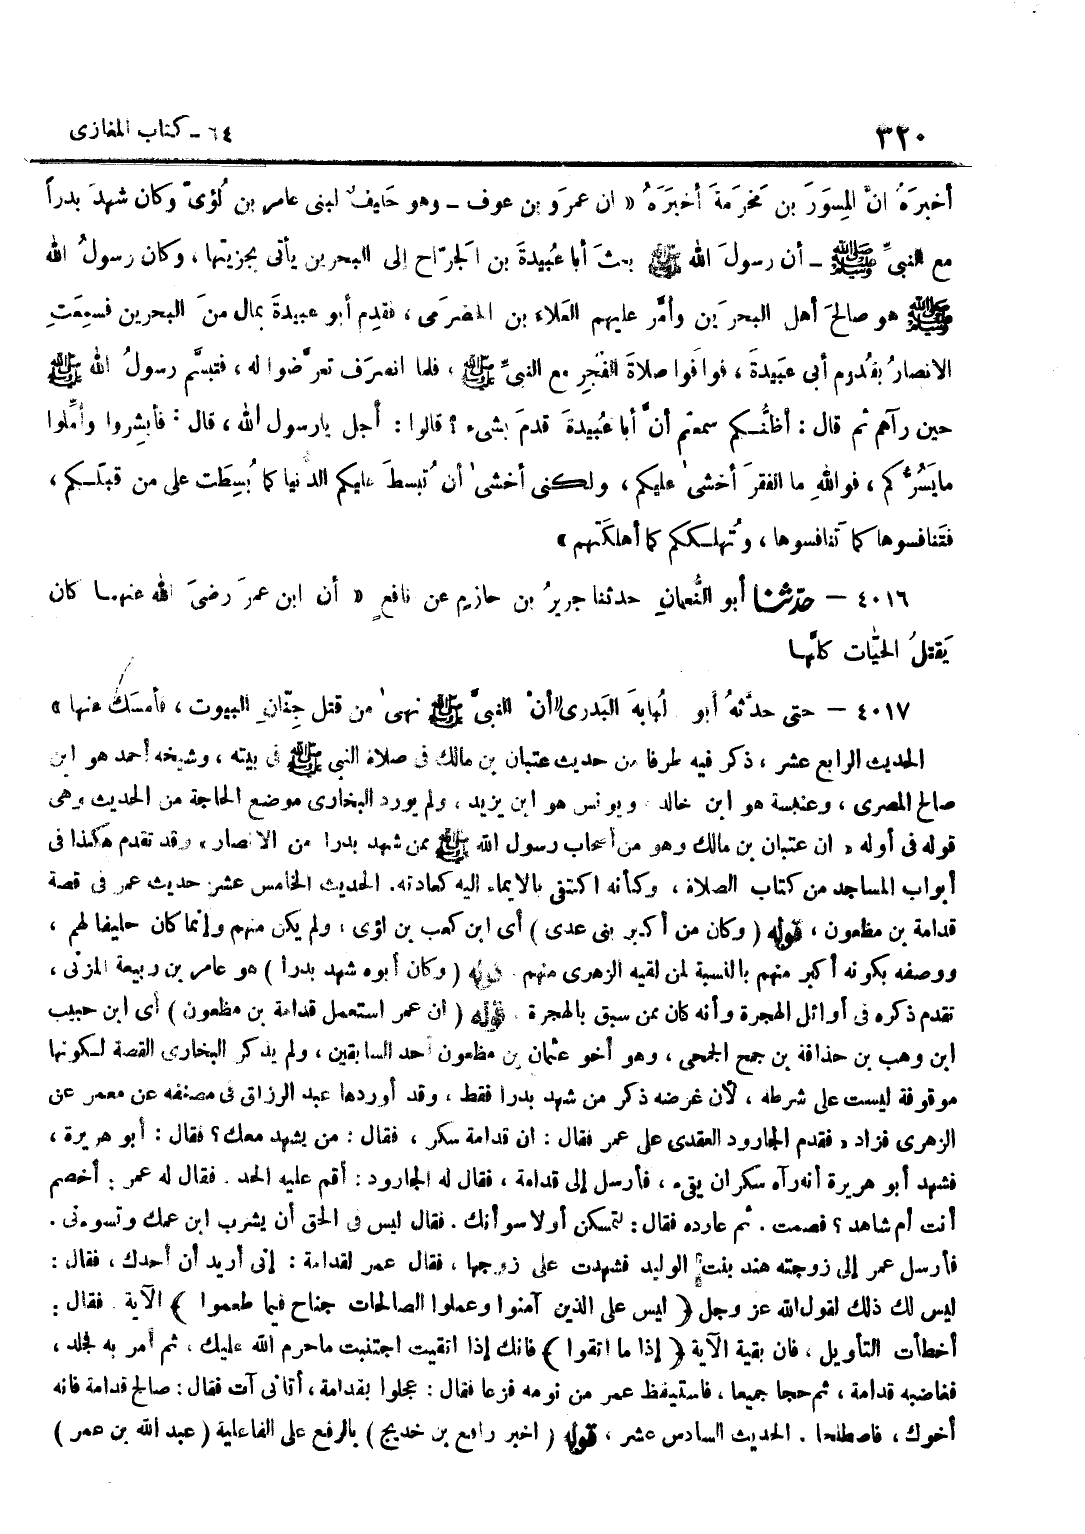 ٣٢٠
٦٤ - كتاب المغازى
أخبرَهُ انَّ المِسوَرَ بن مَخرَمةَ أخبرَهُ « ان عمرَو بن عوف - وهو حَليفٌ لبنى عامر بن لُؤىّ وكان شهدَ بدراً
مع النبىِّ ﷺ - أن رسولَ الله ﷺ بعثَ أبا عُبيدةَ بن الجرّاح إلى البحرين يأتى بجزيتها ، وكان رسولُ الله
ﷺ هو صالحَ أهل البحرَين وأمَّر عليهم العَلاء بن الحضرَمى ، فقدِم أبو عبيدةَ بمال منَ البحرين فسمِعَتِ
الانصارُ بقُدوم أبى عبَيدةَ ، فوافَوا صلاةَ الفَجرِ مع النبىِّ ﷺ ، فلما انصرَف تعرَّضوا له ، فتبسَّم رسولُ الله ﷺ
حين رآهم ثم قال : أظنُّـكم سمعتم أنَّ أبا عُبيدةَ قدمَ بشىء ؟ قالوا : أجل يارسول الله ، قال : فأبشِروا وأمِّلوا
مايَسُرُّكم ، فواللهِ ما الفقرَ أخشىٰ عليكم ، ولـكنى أخشىٰ أن تُبسطَ عليكم الدُّنيا كما بُسِطَت على من قبلَـكم ،
فتَنافسوها كما تَنافسوها ، وتُهلـككم كما أهلكَتهم »
٤٠١٦ - حدّثنا أبو النُّعمانِ حدثنا جريرُ بن حازمٍ عن نافعٍ « أن ابن عمرَ رضىَ الله عنهمـا كان
يَقتلُ الحيّات كلَّهـا
٤٠١٧ - حتى حدثهُ أبو لُبابةَ البَدرى أنْ النبىَّ ﷺ نهىٰ من قتل جِنّانِ البيوت ، فأمسَكَ عنها »
الحديث الرابع عشر ، ذكر فيه طرفا من حديث عتبان بن مالك فى صلاة النبى ﷺ فى بيته ، وشيخه أحمد هو ابن
صالح المصرى ، وعنبسة هو ابن خالد ويونس هو ابن يزيد ، ولم يورد البخارى موضع الحاجة من الحديث وهى
قوله فى أوله « ان عتبان بن مالك وهو من أصحاب رسول الله ﷺ ممن شهد بدرا من الانصار » وقد تقدم هكذا فى
أبواب المساجد من كتاب الصلاة ، وكأنه اكتفى بالايماء اليه كعادته. الحديث الخامس عشر حديث عمر فى قصة
قدامة بن مظعون ، قوله ( وكان من أكبر بنى عدى ) أى ابن كعب بن لؤى ، ولم يكن منهم وإنما كان حليفا لهم ،
ووصفه بكونه أكبر منهم بالنسبة لمن لقيه الزهرى منهم . قوله ( وكان أبوه شهد بدرا ) هو عامر بن ربيعة المزنى ،
تقدم ذكره فى أوائل الهجرة وأنه كان ممن سبق بالهجرة . قوله ( ان عمر استعمل قدامة بن مظعون ) أى ابن حبيب
ابن وهب بن حذافة بن جمح الجمحى ، وهو أخو عثمان بن مظعون أحد السابقين ، ولم يذكر البخارى القصة لـكونها
موقوفة ليست على شرطه ، لأن غرضه ذكر من شهد بدرا فقط ، وقد أوردها عبد الرزاق فى مصنفه عن معمر عن
الزهرى فزاد « فقدم الجارود العقدى على عمر فقال : ان قدامة سكر ، فقال : من يشهد معك؟ فقال : أبو هريرة ،
فشهد أبو هريرة أنه رآه سكران يقىء ، فأرسل إلى قدامة ، فقال له الجارود : أقم عليه الحد . فقال له عمر : أخصم
أنت أم شاهد ؟ فصمت . ثم عاوده فقال : لتمسكن أو لاسوأنك . فقال ليس فى الحق أن يشرب ابن عمك وتسوءنى .
فأرسل عمر إلى زوجته هند بنت الوليد فشهدت على زوجها ، فقال عمر لقدامة : إنى أريد أن أحدك ، فقال :
ليس لك ذلك لقول الله عز وجل ﴿ ليس على الذين آمنوا وعملوا الصالحات جناح فيما طعموا ﴾ الآية . فقال :
أخطأت التأويل ، فان بقية الآية ﴿ إذا ما اتقوا ﴾ فانك إذا اتقيت اجتنبت ماحرم الله عليك ، ثم أمر به فجلد ،
فغاضبه قدامة ، ثم حجا جميعا ، فاستيقظ عمر من نومه فزعا فقال : عجلوا بقدامة ، أتانى آت فقال : صالح قدامة فانه
أخوك ، فاصطلحا . الحديث السادس عشر ، قوله ( اخبر رافع بن خديج ) بالرفع على الفاعلية ( عبد الله بن عمر )